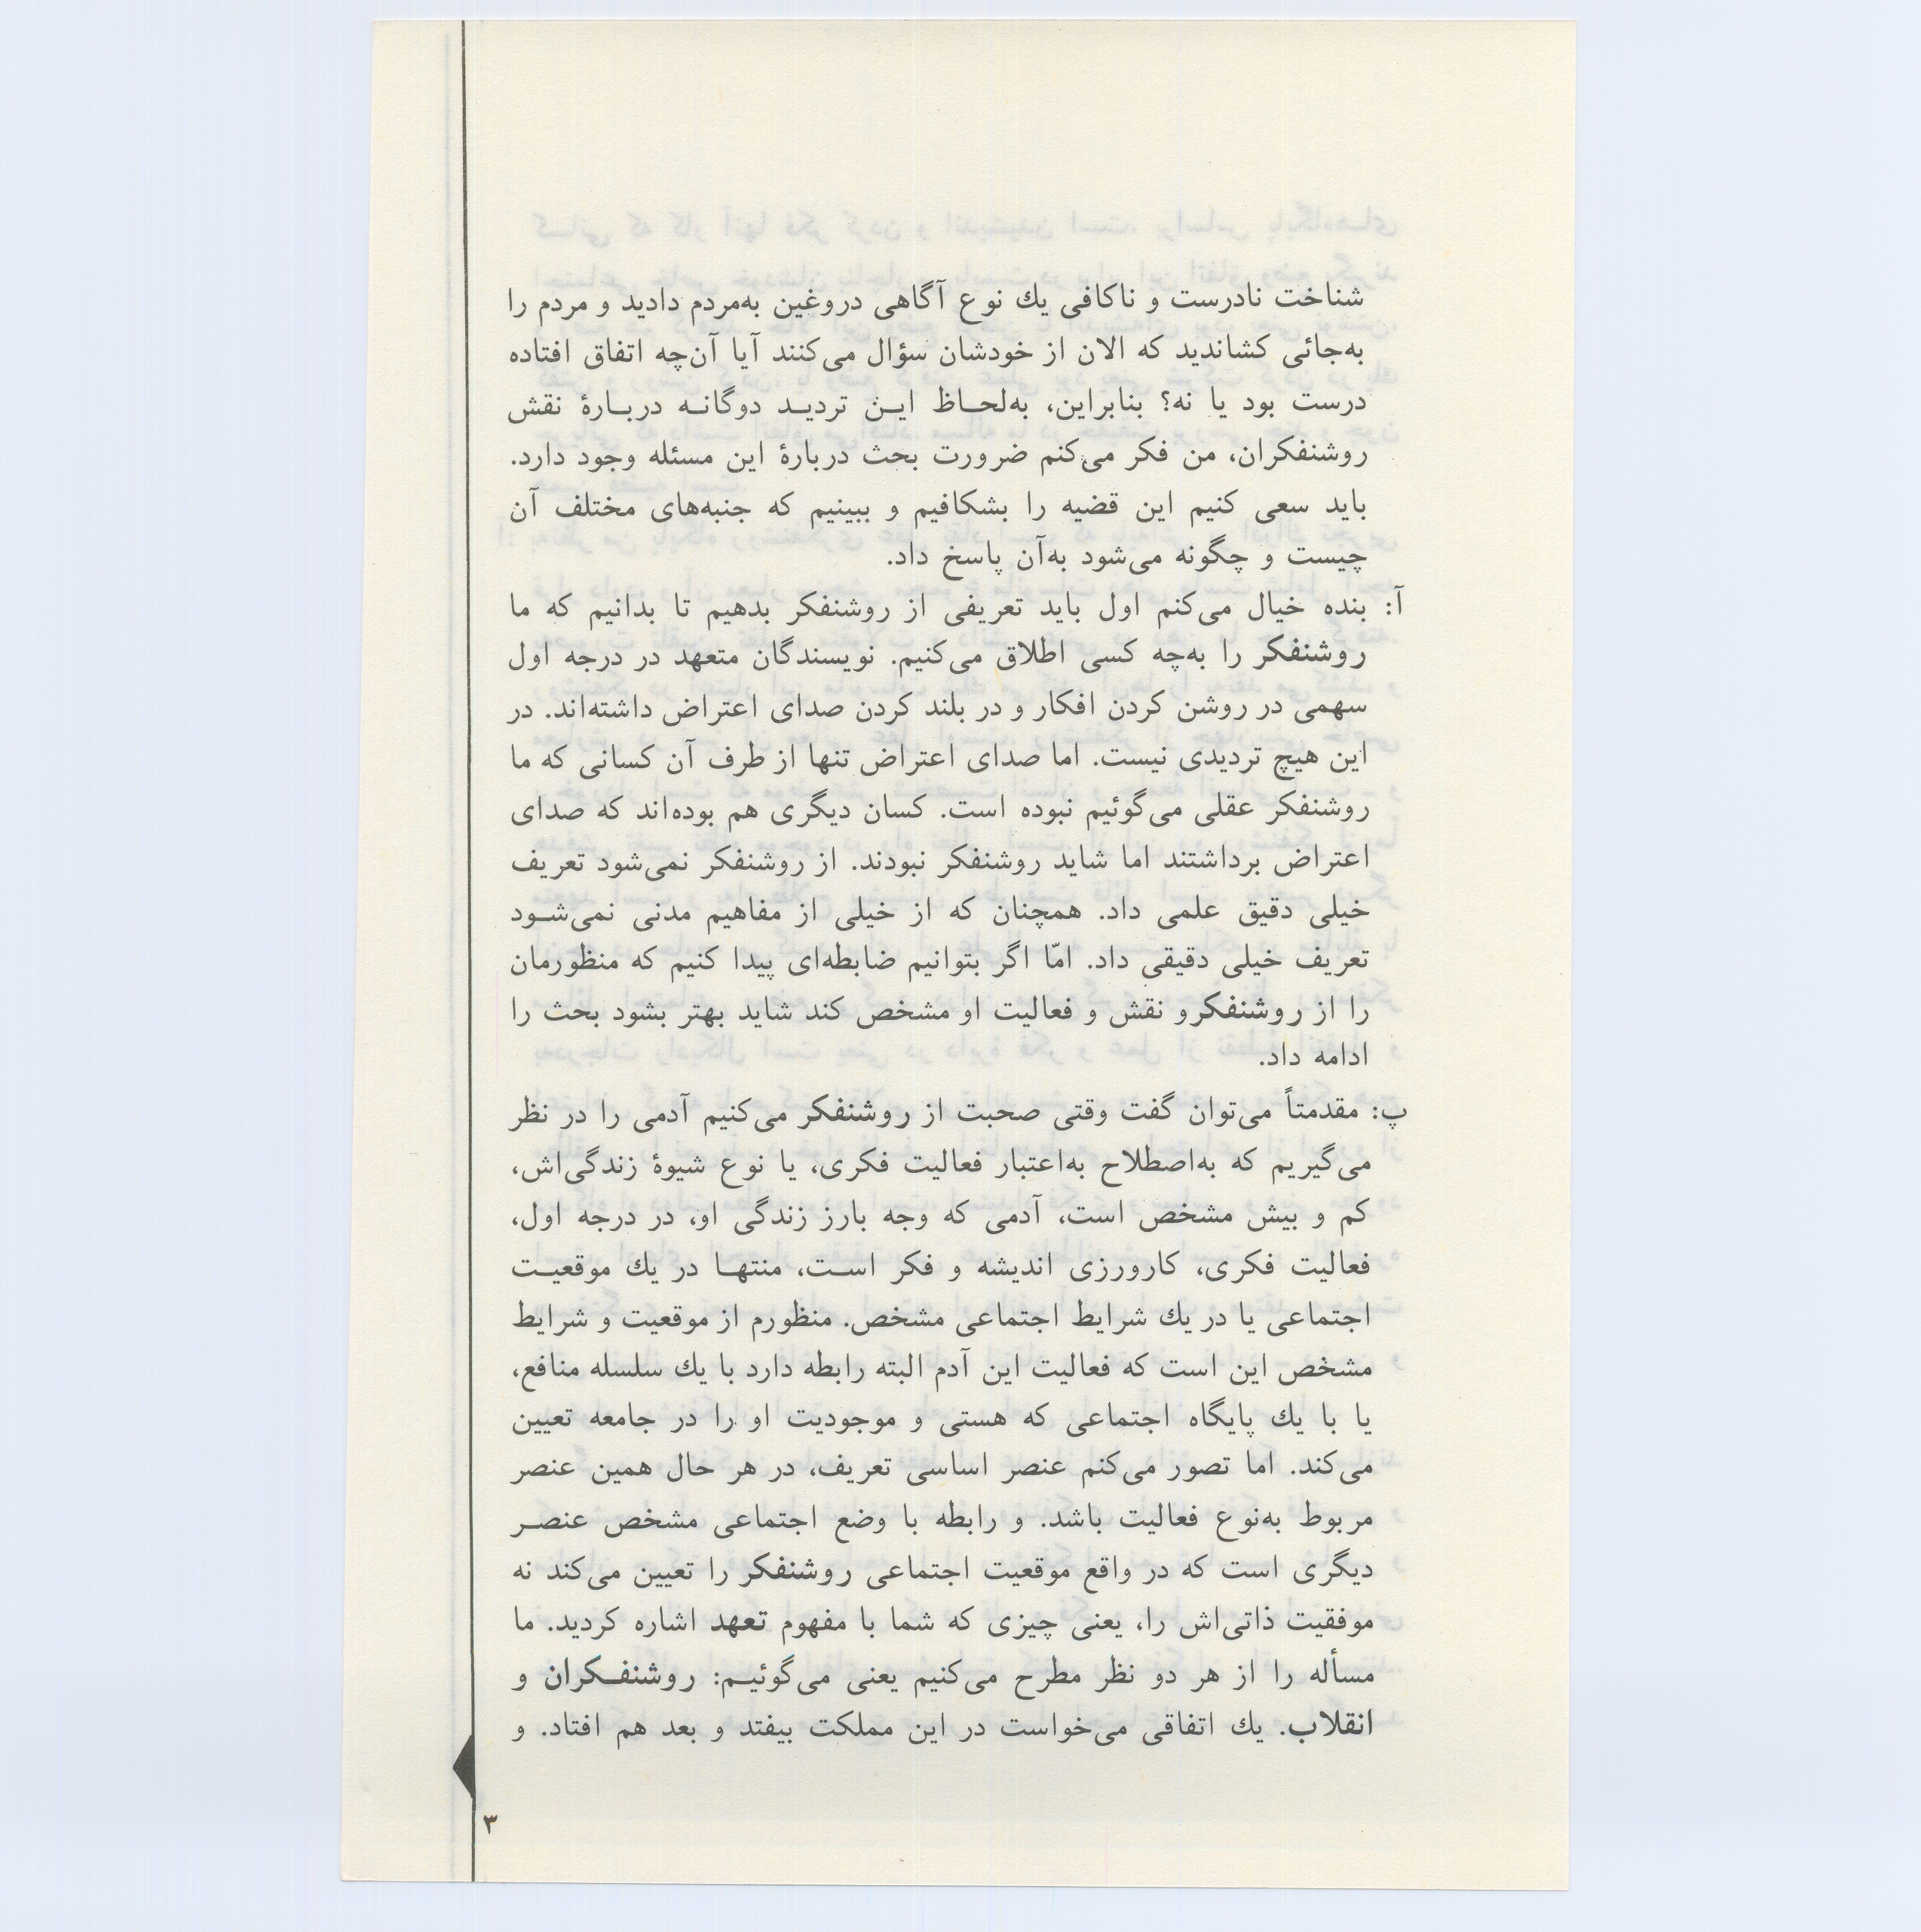 شناخت نادرست و ناکافی یك نوع آگاهی دروغین به‌مردم دادید و مردم را
به‌جائی کشاندید که الان از خودشان سؤال می‌کنند آیا آن‌چه اتفاق افتاده
درست بود یا نه؟ بنابراین، به‌لحـاظ ایـن تردیـد دوگانـه دربـارهٔ نقش
روشنفکران، من فکر می‌کنم ضرورت بحث دربارهٔ این مسئله وجود دارد.
باید سعی کنیم این قضیه را بشکافیم و ببینیم که جنبه‌های مختلف آن
چیست و چگونه می‌شود به‌آن پاسخ داد.
آ: بنده خیال می‌کنم اول باید تعریفی از روشنفکر بدهیم تا بدانیم که ما
روشنفکر را به‌چه کسی اطلاق می‌کنیم. نویسندگان متعهد در درجه اول
سهمی در روشن کردن افکار و در بلند کردن صدای اعتراض داشته‌اند. در
این هیچ تردیدی نیست. اما صدای اعتراض تنها از طرف آن کسانی که ما
روشنفکر عقلی می‌گوئیم نبوده است. کسان دیگری هم بوده‌اند که صدای
اعتراض برداشتند اما شاید روشنفکر نبودند. از روشنفکر نمی‌شود تعریف
خیلی دقیق علمی داد. همچنان که از خیلی از مفاهیم مدنی نمی‌شـود
تعریف خیلی دقیقی داد. امّا اگر بتوانیم ضابطه‌ای پیدا کنیم که منظورمان
را از روشنفکرو نقش و فعالیت او مشخص کند شاید بهتر بشود بحث را
ادامه داد.
پ: مقدمتاً می‌توان گفت وقتی صحبت از روشنفکر می‌کنیم آدمی را در نظر
می‌گیریم که به‌اصطلاح به‌اعتبار فعالیت فکری، یا نوع شیوهٔ زندگی‌اش،
کم و بیش مشخص است، آدمی که وجه بارز زندگی او، در درجه اول،
فعالیت فکری، کارورزی اندیشه و فکر اسـت، منتهـا در یك موقعیـت
اجتماعی یا در یك شرایط اجتماعی مشخص. منظورم از موقعیت و شرایط
مشخص این است که فعالیت این آدم البته رابطه دارد با یك سلسله منافع،
یا با یك پایگاه اجتماعی که هستی و موجودیت او را در جامعه تعیین
می‌کند. اما تصور می‌کنم عنصر اساسی تعریف، در هر حال همین عنصر
مربوط به‌نوع فعالیت باشد. و رابطه با وضع اجتماعی مشخص عنصـر
دیگری است که در واقع موقعیت اجتماعی روشنفکر را تعیین می‌کند نه
موفقیت ذاتی‌اش را، یعنی چیزی که شما با مفهوم تعهد اشاره کردید. ما
مسأله را از هر دو نظر مطرح می‌کنیم یعنی می‌گوئیـم: روشنفـکران و
انقلاب. یك اتفاقی می‌خواست در این مملکت بیفتد و بعد هم افتاد. و
۳